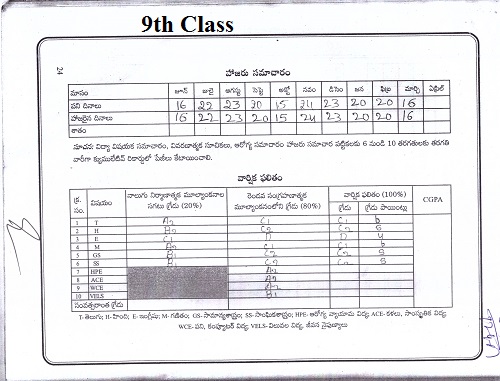 9th Class
24
హాజరు సమాచారం
మాసం జూన్ జులై ఆగస్టు సెప్టె అక్టో నవం డిసెం జన ఫిబ్ర మార్చి ఏప్రిల్
పని దినాలు 16 22 23 20 15 24 23 20 20 16
హాజరైన దినాలు 16 22 23 20 15 24 23 20 20 16
శాతం
సూచన: విద్యా విషయక సమాచారం, వివరణాత్మక సూచికలు, ఆరోగ్య సమాచారం హాజరు సమాచార పట్టికలకు 6 నుండి 10 తరగతులకు తరగతి
వారీగా క్యుములేటివ్ రికార్డులో పేజీలు కేటాయించాలి.
వార్షిక ఫలితం
క్ర. సం. విషయం నాలుగు నిర్మాణాత్మక మూల్యాంకనాల సగటు గ్రేడు (20%) రెండవ సంగ్రహణాత్మక మూల్యాంకనంలోని గ్రేడు (80%) వార్షిక ఫలితం (100%) CGPA
గ్రేడు గ్రేడు పాయింట్లు
1 T A2 C1 C1 6
2 H B2 C2 C2 5
3 E C1 D D 4
4 M A2 C1 C1 6
5 GS B1 C2 C2 5
6 SS B1 C2 C2 5
7 HPE A2
8 ACE A2
9 WCE A2
10 VELS B1
సంవత్సరాంత గ్రేడు
T-తెలుగు; H-హింది; E-ఇంగ్లీషు; M-గణితం; GS-సామాన్యశాస్త్రం; SS-సాంఘికశాస్త్రం; HPE-ఆరోగ్య వ్యాయామ విద్య; ACE-కళలు, సాంస్కృతిక విద్య;
WCE-పని, కంప్యూటర్ విద్య; VELS-విలువల విద్య, జీవన నైపుణ్యాలు